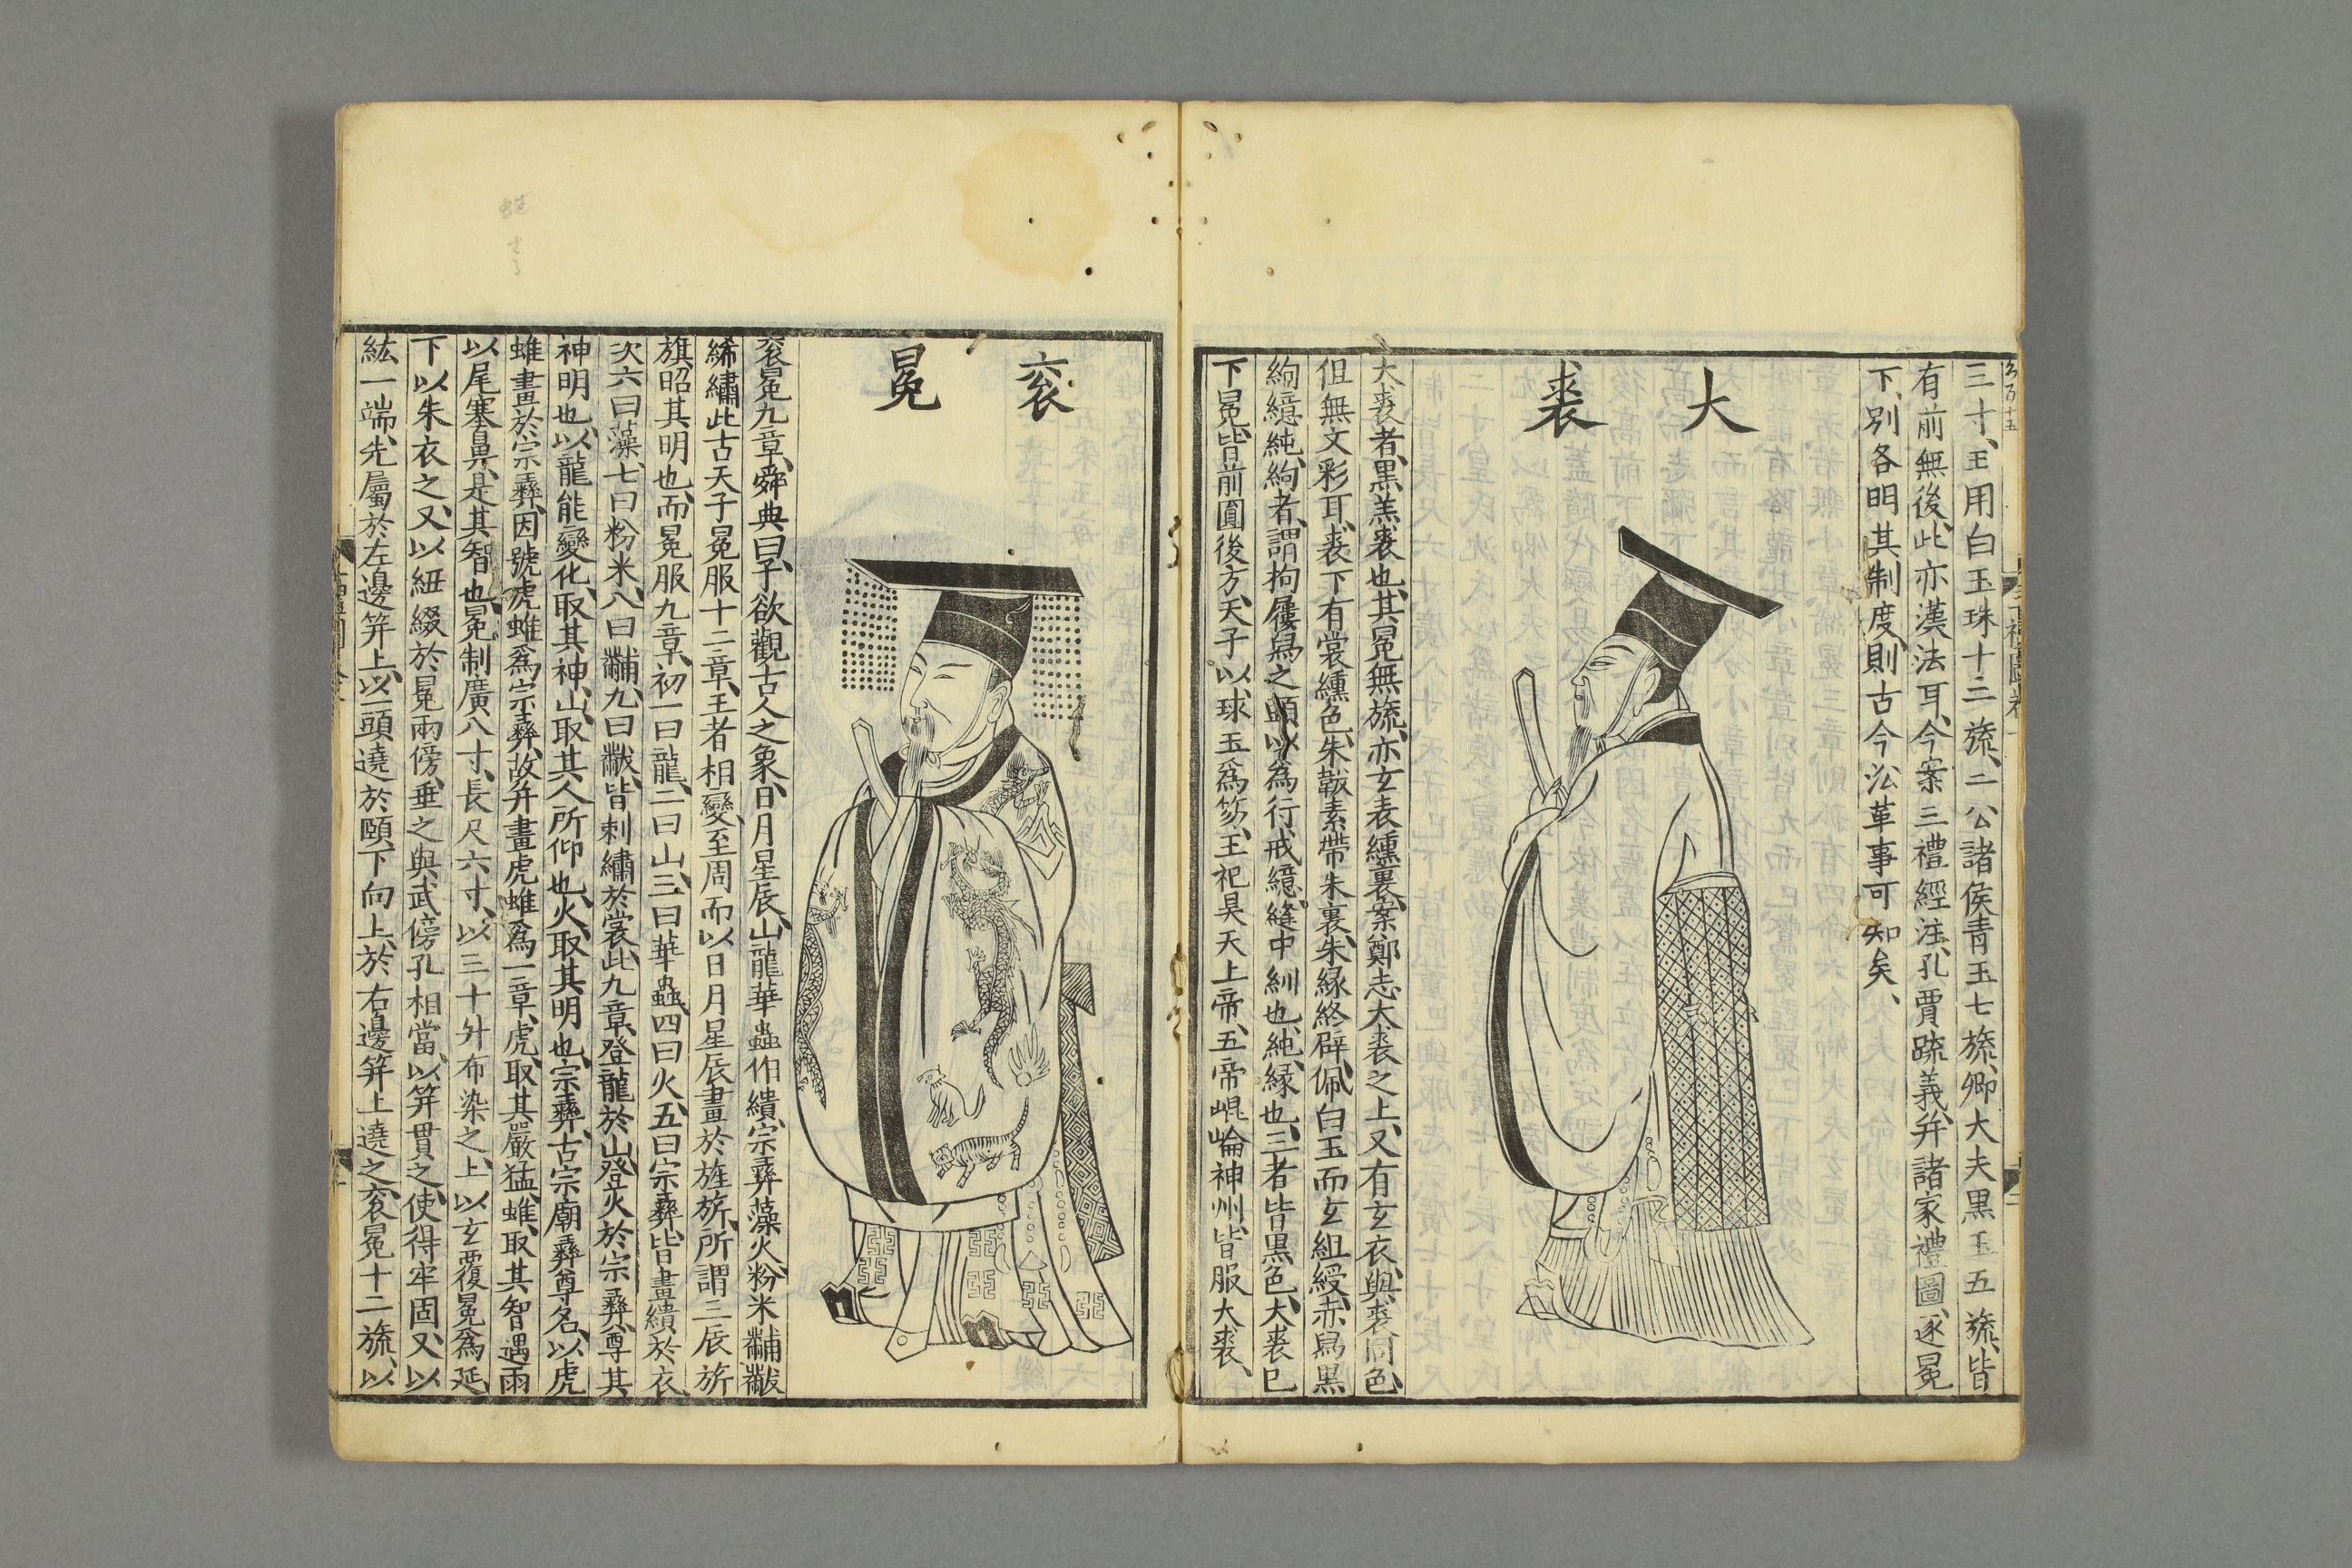 三寸、王用白玉珠十二旒、二公諸侯青玉七旒、卿大夫黑玉五旒、皆
有前無後、此亦漢法耳、今案三禮經注、孔賈疏義、幷諸家禮圖、逐冕
下、別各明其制度、則古今沿革事可知矣、
大裘
大裘者、黑羔裘也、其冕無旒、亦玄表纁裏、案鄭志大裘之上、又有玄衣、與裘同色、
但無文彩耳、裘下有裳纁色、朱韍素帶朱裏、朱緣終辟、佩白玉而玄組綬、赤舄黑
絇繶純、絇者、謂拘屨舄之頭、以爲行戒、繶、縫中紃也、純、緣也、三者皆黑色、大裘已
下冕、皆前圓後方、天子以球玉爲笏、王祀昊天上帝、五帝崐崘神州、皆服大裘、
袞冕
袞冕九章、舜典曰、予欲觀古人之象、日月星辰、山龍華蟲作繢、宗彝藻火、粉米黼黻
絺繡、此古天子冕服十二章、王者相變、至周而以日月星辰畫於旌旂、所謂三辰旂
旗、昭其明也、而冕服九章、初一曰龍、二曰山、三曰華蟲、四曰火、五曰宗彝、皆畫繢於衣、
次六曰藻、七曰粉米、八曰黼、九曰黻、皆刺繡於裳、此九章、登龍於山、登火於宗彝、尊其
神明也、以龍能變化、取其神、山取其人所仰也、火取其明也、宗彝、古宗廟彝尊名、以虎
蜼畫於宗彝、因號虎蜼爲宗彝、故幷畫虎蜼爲一章、虎、取其嚴猛、蜼、取其智、遇雨
以尾塞鼻、是其智也、冕制廣八寸、長尺六寸、以三十升布染之、上以玄覆冕爲延、
下以朱衣之、又以紐綴於冕兩傍、垂之與武傍孔相當、以笄貫之、使得牢固、又以
紘一端、先屬於左邊笄上、以一頭遶於頤下、向上、於右邊笄上遶之、袞冕十二旒、以